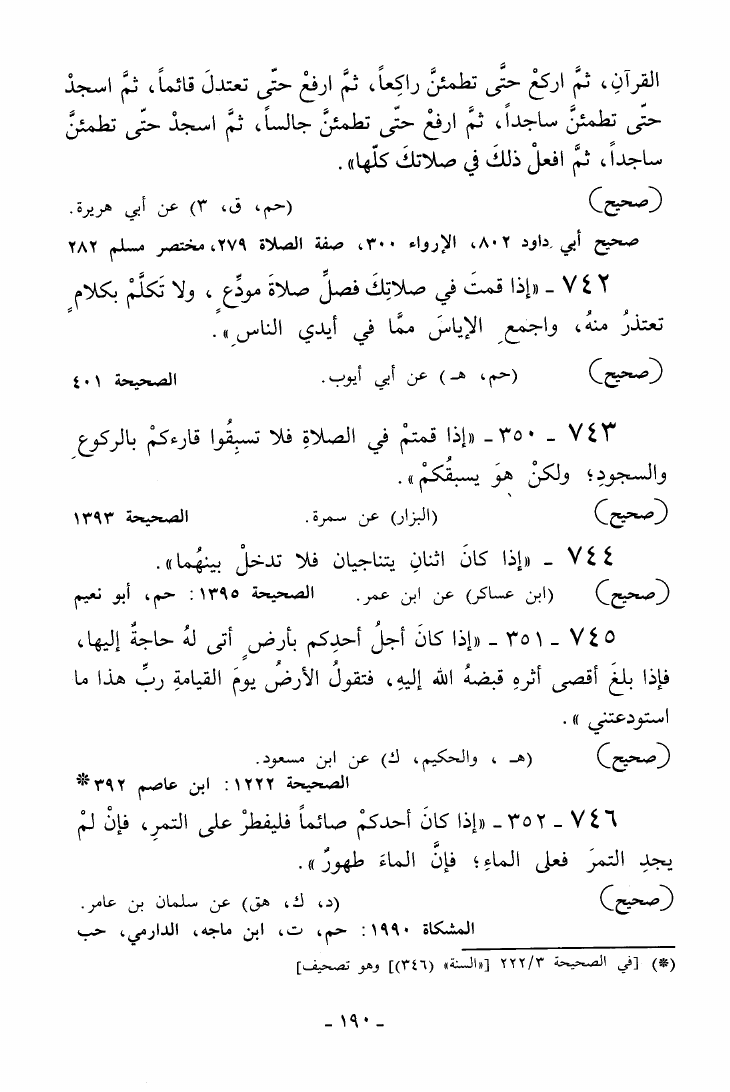 القرآنِ، ثمَّ اركعْ حتَّى تطمئنَّ راكِعاً، ثمَّ ارفعْ حتّى تعتدلَ قائماً، ثم اسجدْ
حتّى تطمئنَّ ساجداً، ثمَّ ارفعْ حتّى تطمئنَّ جالساً، ثمَّ اسجدْ حتّى تطمئنَّ
ساجداً، ثمَّ افعلْ ذلكَ في صلاتكَ كلّها».
(صحيح) (حم، ق، ٣) عن أبي هريرة.
صحيح أبي داود ٨٠٢، الإرواء ٣٠٠، صفة الصلاة ٢٧٩، مختصر مسلم ٢٨٢
٧٤٢ ـ «إذا قمتَ في صلاتِكَ فصلِّ صلاةَ مودِّعٍ، ولا تَكلَّمْ بكلامٍ
تعتذرُ منهُ، واجمعِ الإياسَ ممَّا في أيدي الناسِ».
(صحيح) (حم، هـ) عن أبي أيوب. الصحيحة ٤٠١
٧٤٣ ـ ٣٥٠ ـ «إذا قمتمْ في الصلاةِ فلا تسبِقُوا قارءكمْ بالركوعِ
والسجودِ؛ ولكنْ هوَ يسبقُكمْ».
(صحيح) (البزار) عن سمرة. الصحيحة ١٣٩٣
٧٤٤ ـ «إذا كانَ اثنانِ يتناجيان فلا تدخلْ بينهُما».
(صحيح) (ابن عساكر) عن ابن عمر. الصحيحة ١٣٩٥: حم، أبو نعيم
٧٤٥ ـ ٣٥١ ـ «إذا كانَ أجلُ أحدِكم بأرضٍ أتى لهُ حاجةٌ إليها،
فإذا بلغَ أقصى أثرهِ قبضهُ الله إليهِ، فتقولُ الأرضُ يومَ القيامةِ ربِّ هذا ما
استودعتني».
(صحيح) (هـ ، والحكيم، ك) عن ابن مسعود.
الصحيحة ١٢٢٢: ابن عاصم ٣٩٢*
٧٤٦ ـ ٣٥٢ ـ «إذا كانَ أحدكمْ صائماً فليفطرْ على التمرِ، فإنْ لمْ
يجدِ التمرَ فعلى الماءِ؛ فإنَّ الماءَ طهورٌ».
(صحيح) (د، ك، هق) عن سلمان بن عامر.
المشكاة ١٩٩٠: حم، ت، ابن ماجه، الدارمي، حب
(*) [في الصحيحة ٢٢٢/٣ [«السنة» (٣٤٦)] وهو تصحيف]
ـ ١٩٠ ـ